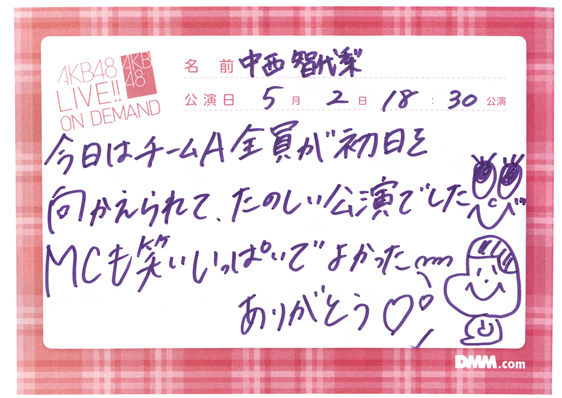 AKB48
LIVE!!
ON DEMAND
AKB
48
名前 中西智代梨
公演日 5月2日 18:30公演
今日はチームA全員が初日を
向かえられて、たのしい公演でした
MCも笑いいっぱいでよかった
ありがとう♡
DMM.com